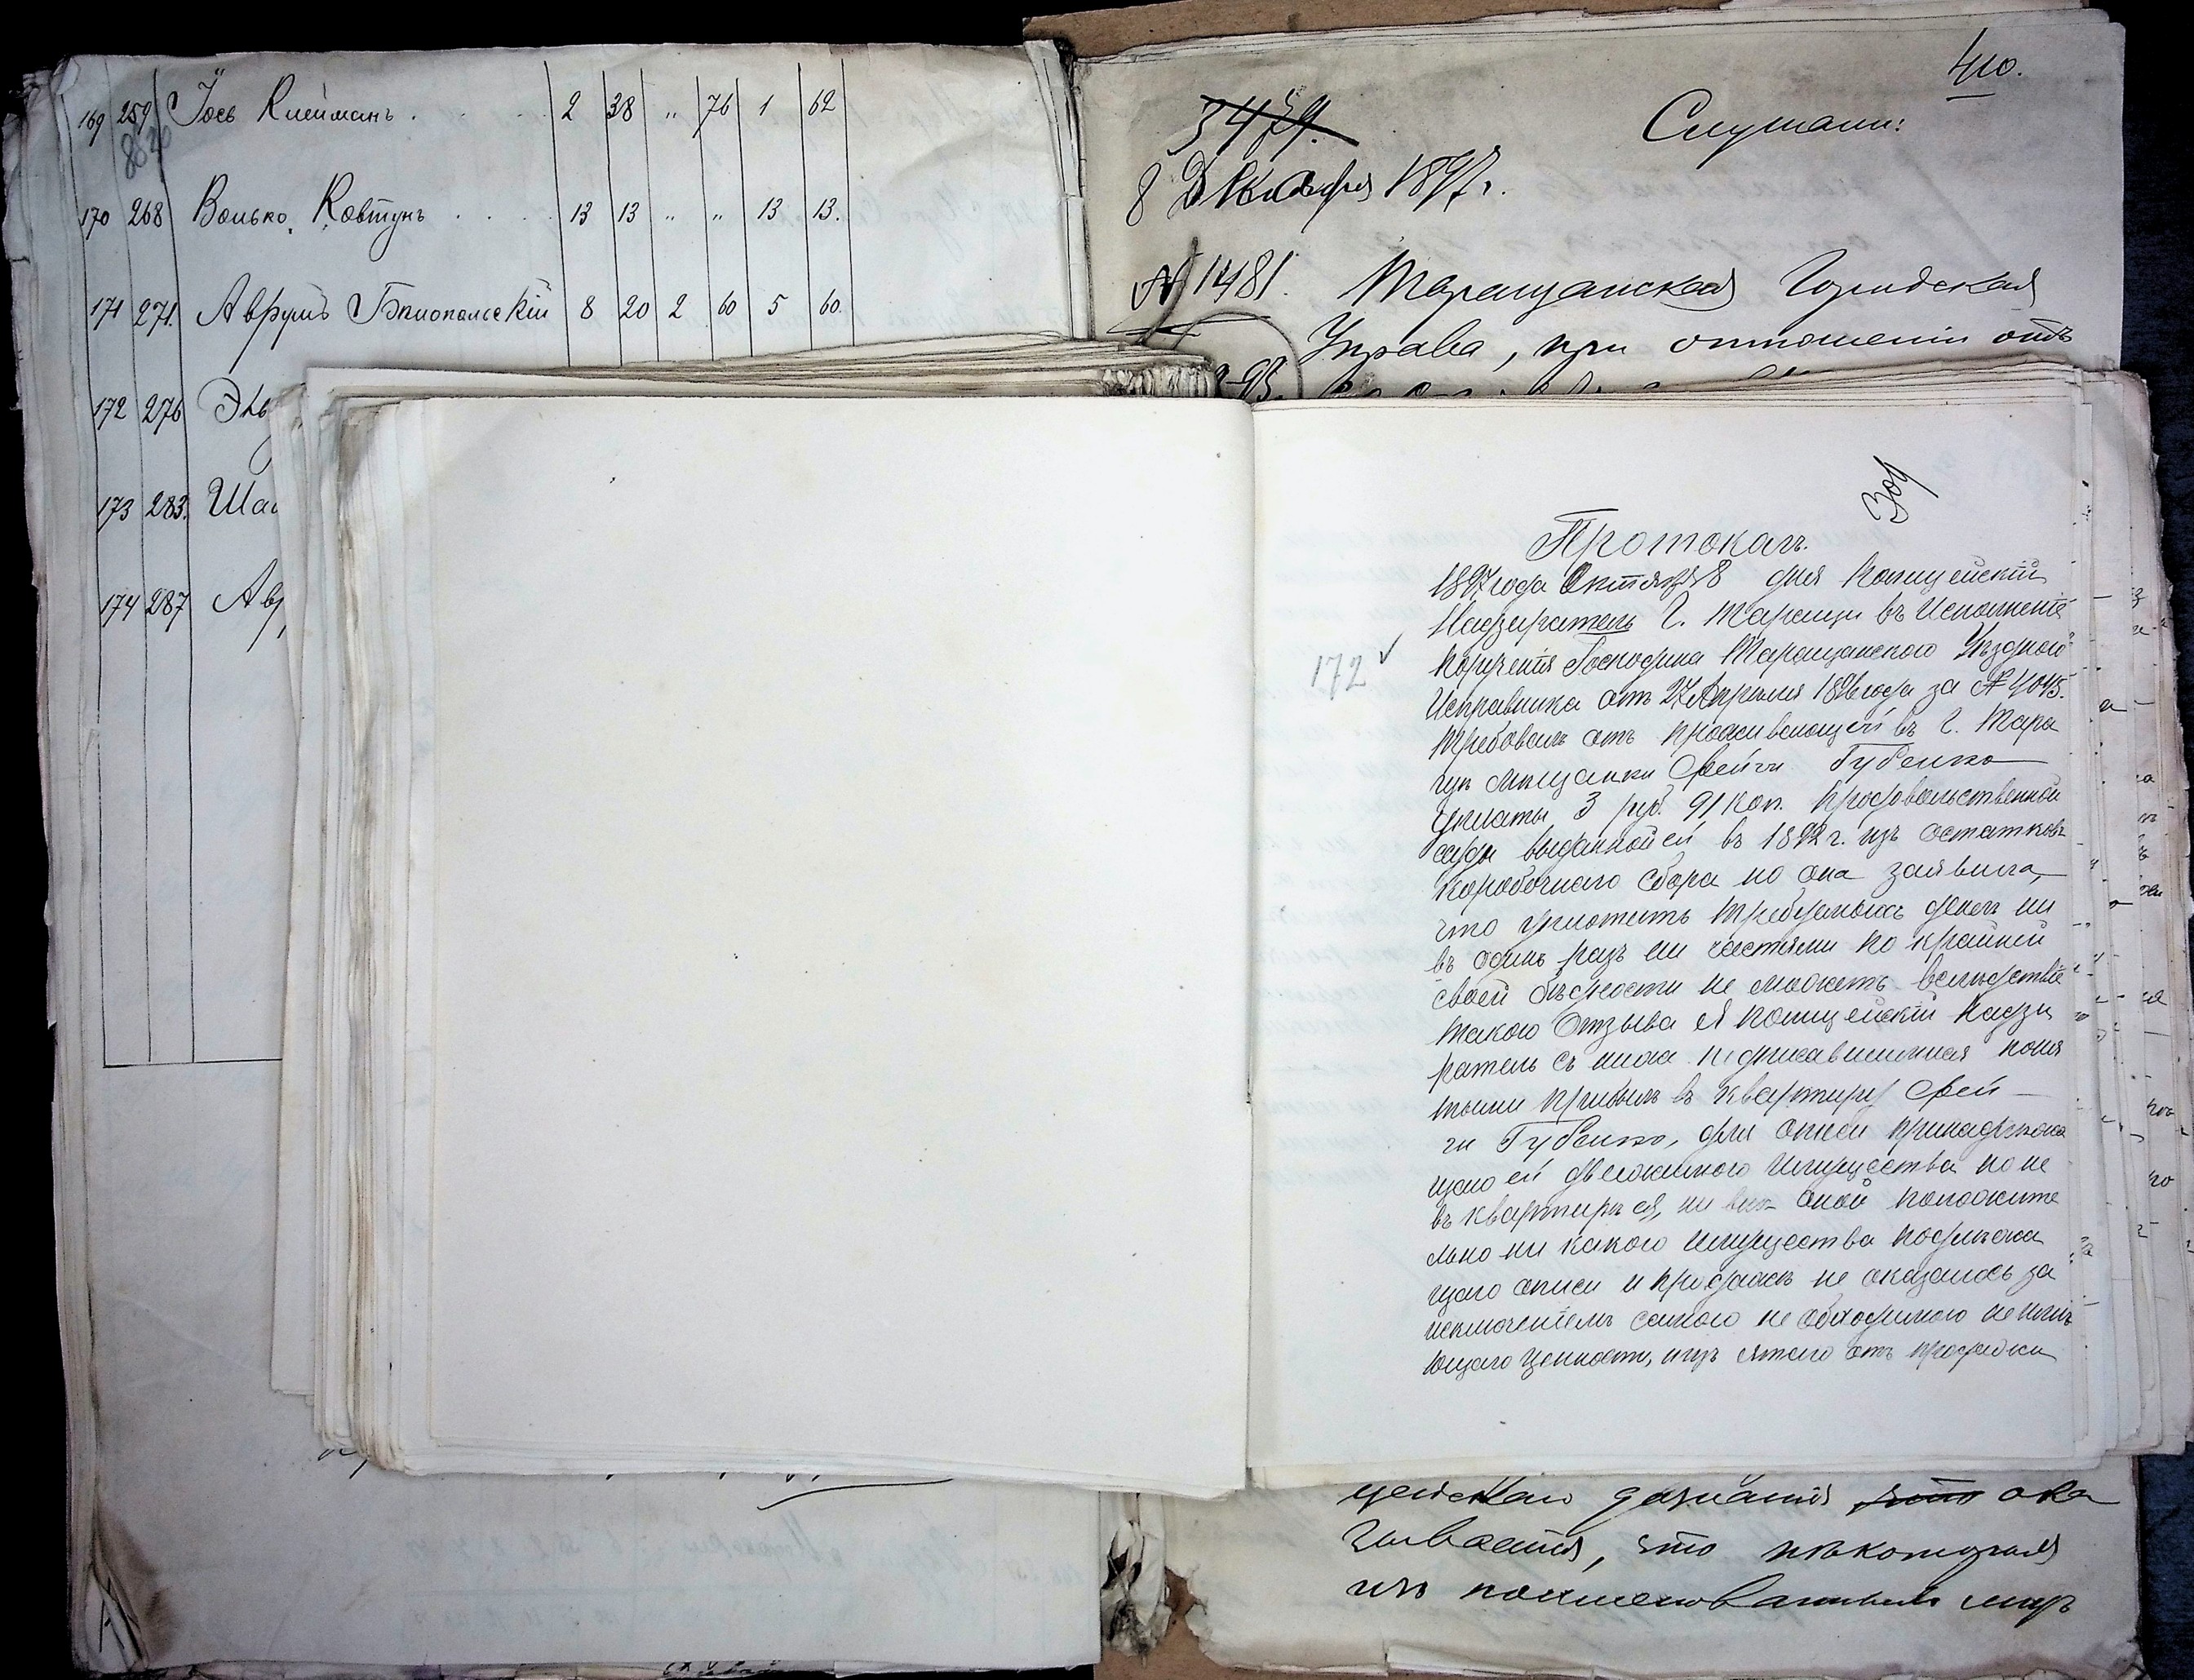 169 259 Іось Клейманъ . . . . 2 38 " 76 1 62
170 268 Волько Ковтунъ . . . . 13 13 " " 13 13.
171 271. Аврумъ Бялопольскій 8 20 2 60 5 60.
172 276
173 283.
174 287
410.
3479.
Слушали:
8 Декабря 1897 г.
№ 1481. Таращанская Городская
Управа, при отношеніи отъ
309
Протоколъ.
1897 года Октября 8 дня Полицейскій
Надзиратель г. Таращи въ Исполненіе
172 ✓
порученія Господина Таращанского Уѣздного
Исправника отъ 27 Апрѣля 1896 года за № 4045.
Требовалъ отъ проживающей въ г. Тара
щѣ мѣщанки Фейги Губенко
уплаты 3 руб. 91 коп. продовольственной
суды выданной ей въ 1892 г. изъ остатковъ
коробочнаго сбора но она заявила,
что уплотить требуемыхъ денегъ ни
въ одинъ разъ ни частями по крайней
своей бѣдности не можетъ вслѣдствіе
такого Отзыва Я Полицейскій Надзи
ратель съ ниже подписавшимися поня
тыми прибылъ въ квартиру Фей-
ги Губенко, для описи принадлежа
щаго ей движимого Имущества но не
въ квартирѣ ея, ни внѣ оной положите
льно ни какого имущества подлежа
щаго описи и продажѣ не оказалось за
исключеніемъ самого не обходимого не имѣ
ющаго ценности, изъ ятаго отъ продажи
цейскаго дознанія что ока
зывается, что нѣкоторыя
изъ поименованныхъ лицъ